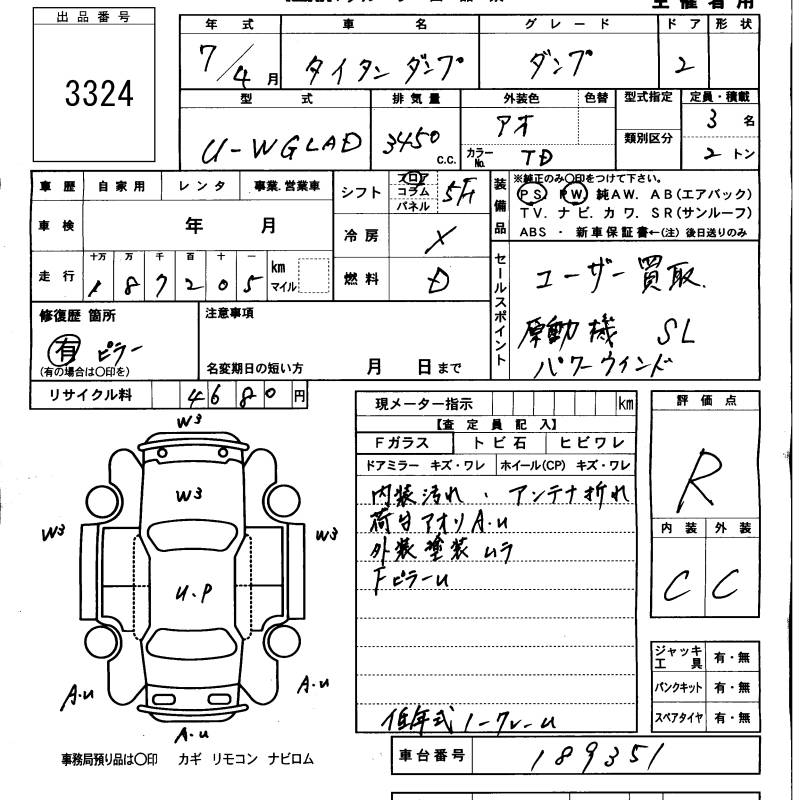 出品番号
3324
主催者用
年式 車名 グレード ドア 形状
7/4月 タイタンダンプ ダンプ 2
型式 排気量 外装色 色替 型式指定 定員・積載
U-WGLAD 3450 C.C. アオ 類別区分 3名
カラーNo. TD 2トン
車歴 自家用 レンタ 事業.営業車
シフト フロア コラム パネル 5F
装備品 ※純正のみ〇印をつけて下さい。
PS. PW 純AW. AB(エアバック)
TV. ナビ. カワ. SR(サンルーフ)
ABS ・ 新車保証書←(注)後日送りのみ
車検 年 月
冷房 ×
走行 十万 万 千 百 十 一
187205 km マイル
燃料 D
セールスポイント
ユーザー買取.
原動機 SL
パワーウインド
修復歴 箇所
有 ピラー
(有の場合は〇印を)
注意事項
名変期日の短い方 月 日まで
リサイクル料 4680円
現メーター指示 km
【査定員記入】
Fガラス トビ石 ヒビワレ
ドアミラー キズ・ワレ ホイール(CP) キズ・ワレ
内装汚れ . アンテナ折れ
荷台アオリA.U
外装塗装ムラ
FピラーU
低年式ノークレーム
評価点
R
内装 外装
C C
W3
W3
W3 W3
U.P
A.U A.U
A.U
ジャッキ工具 有・無
パンクキット 有・無
スペアタイヤ 有・無
事務局預り品は〇印 カギ リモコン ナビロム
車台番号 189351